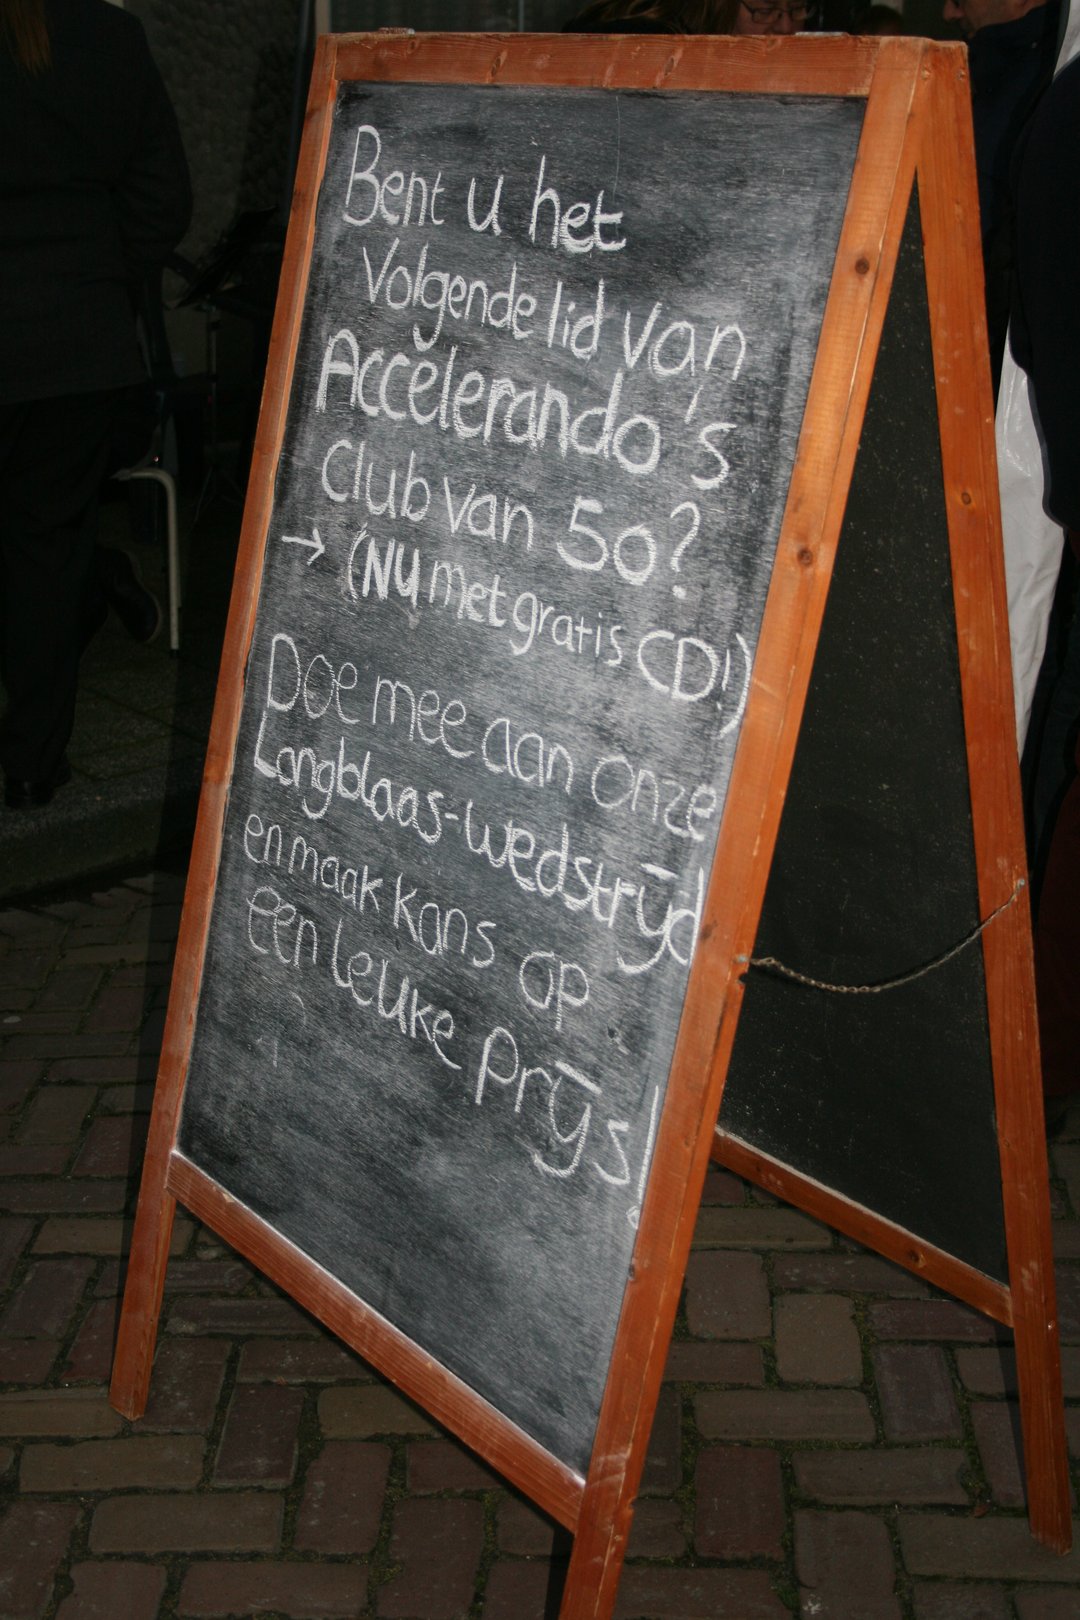 Bent u het
volgende lid van
Accelerando's
club van 50?
→ (NU met gratis CD!)
Doe mee aan onze
Langblaas-wedstrijd
en maak kans op
een leuke prijs!